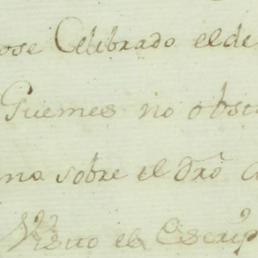 ose Celibrado el de
Guemes no obsc
ma sobre el Dro
Visto el Escrip